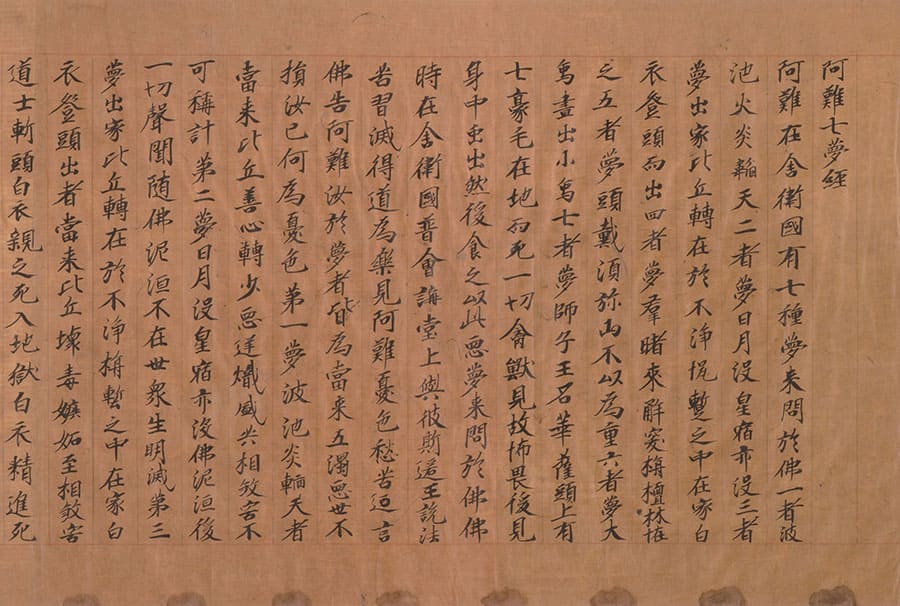 阿難七夢經
阿難在舍衛國有七種夢来問於佛一者波
池火炎滔天二者夢日月没星宿亦没三者
夢出家比丘轉在於不淨坑塹之中在家白
衣登頭而出四者夢羣猪来觝突栴檀林恠
之五者夢頭戴須弥山不以為重六者夢大
為盡出小為七者夢師子王名華薩頭上有
七豪毛在地而死一切禽獸見故怖畏後見
身中虫出然後食之以此惡夢来問於佛佛
時在舍衛國普會講堂上與彼斯迊王說法
苦習滅得道為樂見阿難憂色愁苦迊言
佛告阿難汝於夢者皆為當来五濁惡世不
損汝已何為憂色第一夢波池炎輈天者
當来比丘善心轉少惡逆熾盛共相煞害不
可稱計第二夢日月没星宿亦没佛泥洹後
一切聲聞随佛泥洹不在世衆生明滅第三
夢出家比丘轉在於不淨栴塹之中在家白
衣登頭出者當来比丘壞毒嫉妬至相煞害
道士斬頭白衣親之死入地獄白衣精進死